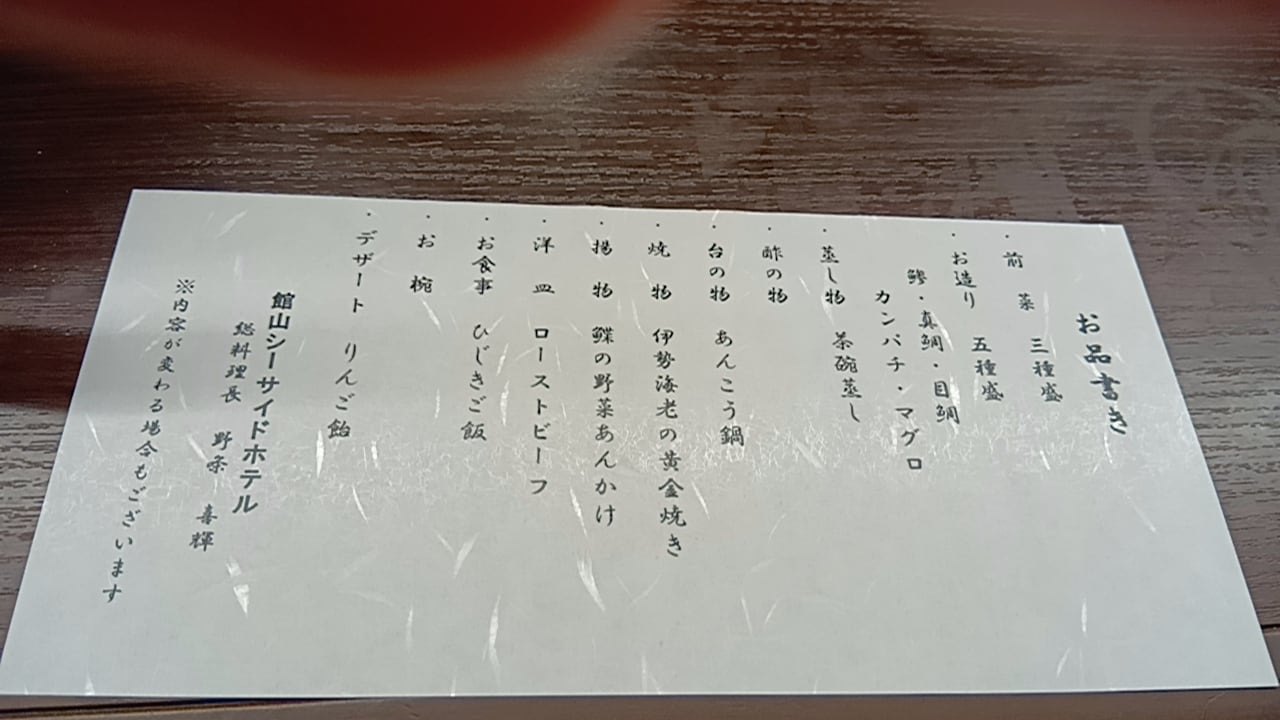 お品書き
・前 菜 三種盛
・お造り 五種盛
鰺・真鯛・目鯛
カンパチ・マグロ
・蒸し物 茶碗蒸し
・酢の物
・台の物 あんこう鍋
・焼 物 伊勢海老の黄金焼き
・揚 物 鰈の野菜あんかけ
・洋 皿 ローストビーフ
・お食事 ひじきご飯
・お 椀
・デザート りんご飴
館山シーサイドホテル
総料理長 野条 喜輝
※内容が変わる場合もございます